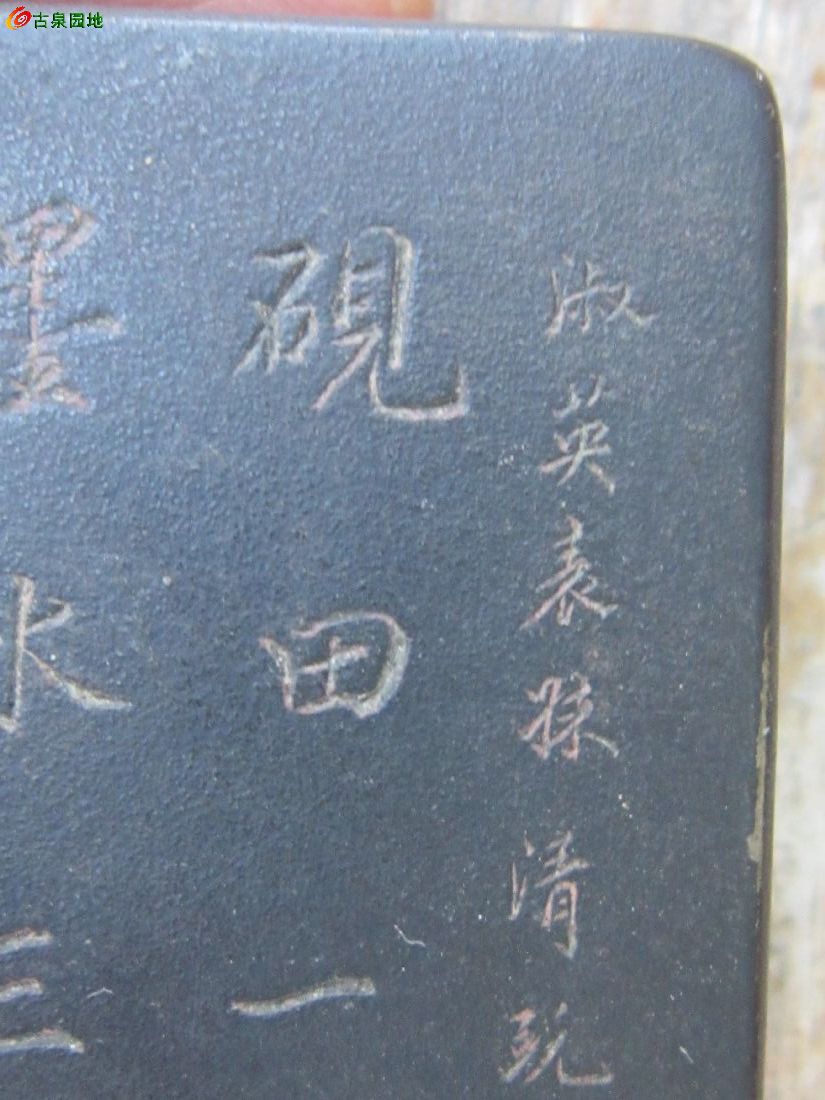 古泉园地
淑英表妹清玩
硯田一
墨水三